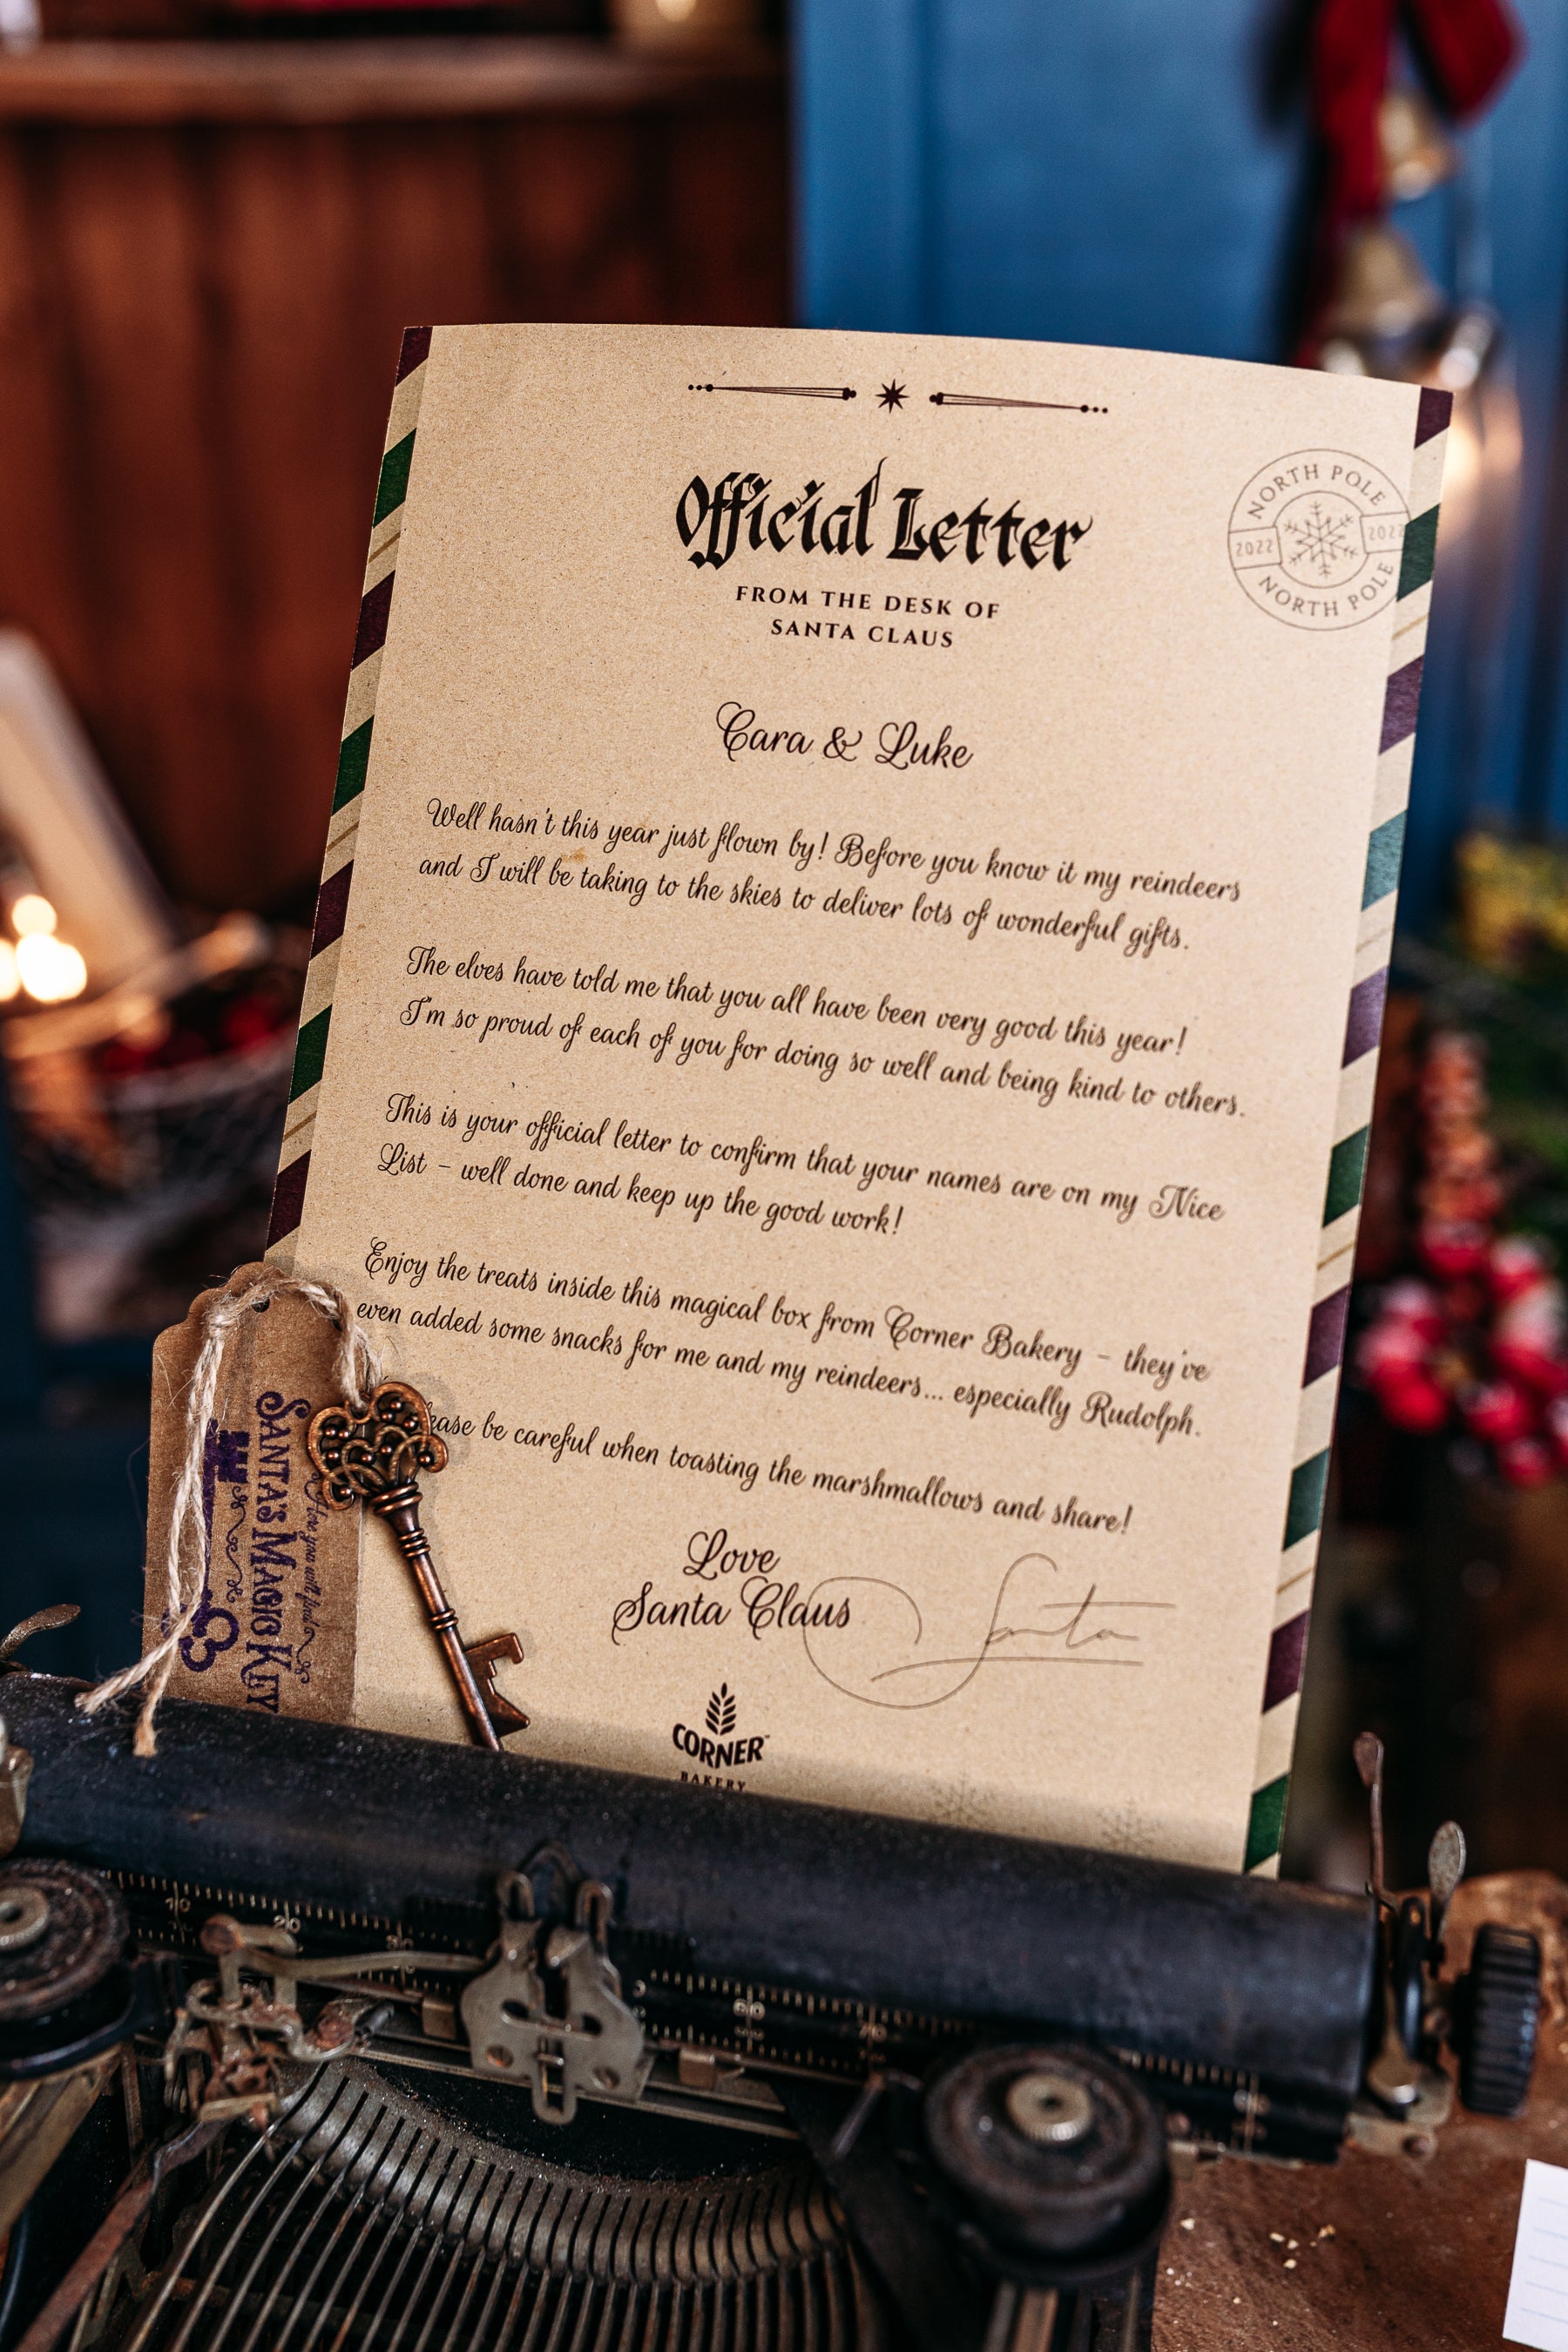 Official Letter
FROM THE DESK OF
SANTA CLAUS
NORTH POLE
2022 2022
NORTH POLE
Cara & Luke
Well hasn't this year just flown by! Before you know it my reindeers
and I will be taking to the skies to deliver lots of wonderful gifts.
The elves have told me that you all have been very good this year!
I'm so proud of each of you for doing so well and being kind to others.
This is your official letter to confirm that your names are on my Nice
List – well done and keep up the good work!
Enjoy the treats inside this magical box from Corner Bakery – they've
even added some snacks for me and my reindeers... especially Rudolph.
ease be careful when toasting the marshmallows and share!
Love
Santa Claus
Santa
CORNER™
BAKERY
Here you will find
SANTA'S MAGIC KEY
10 20 30 60 70